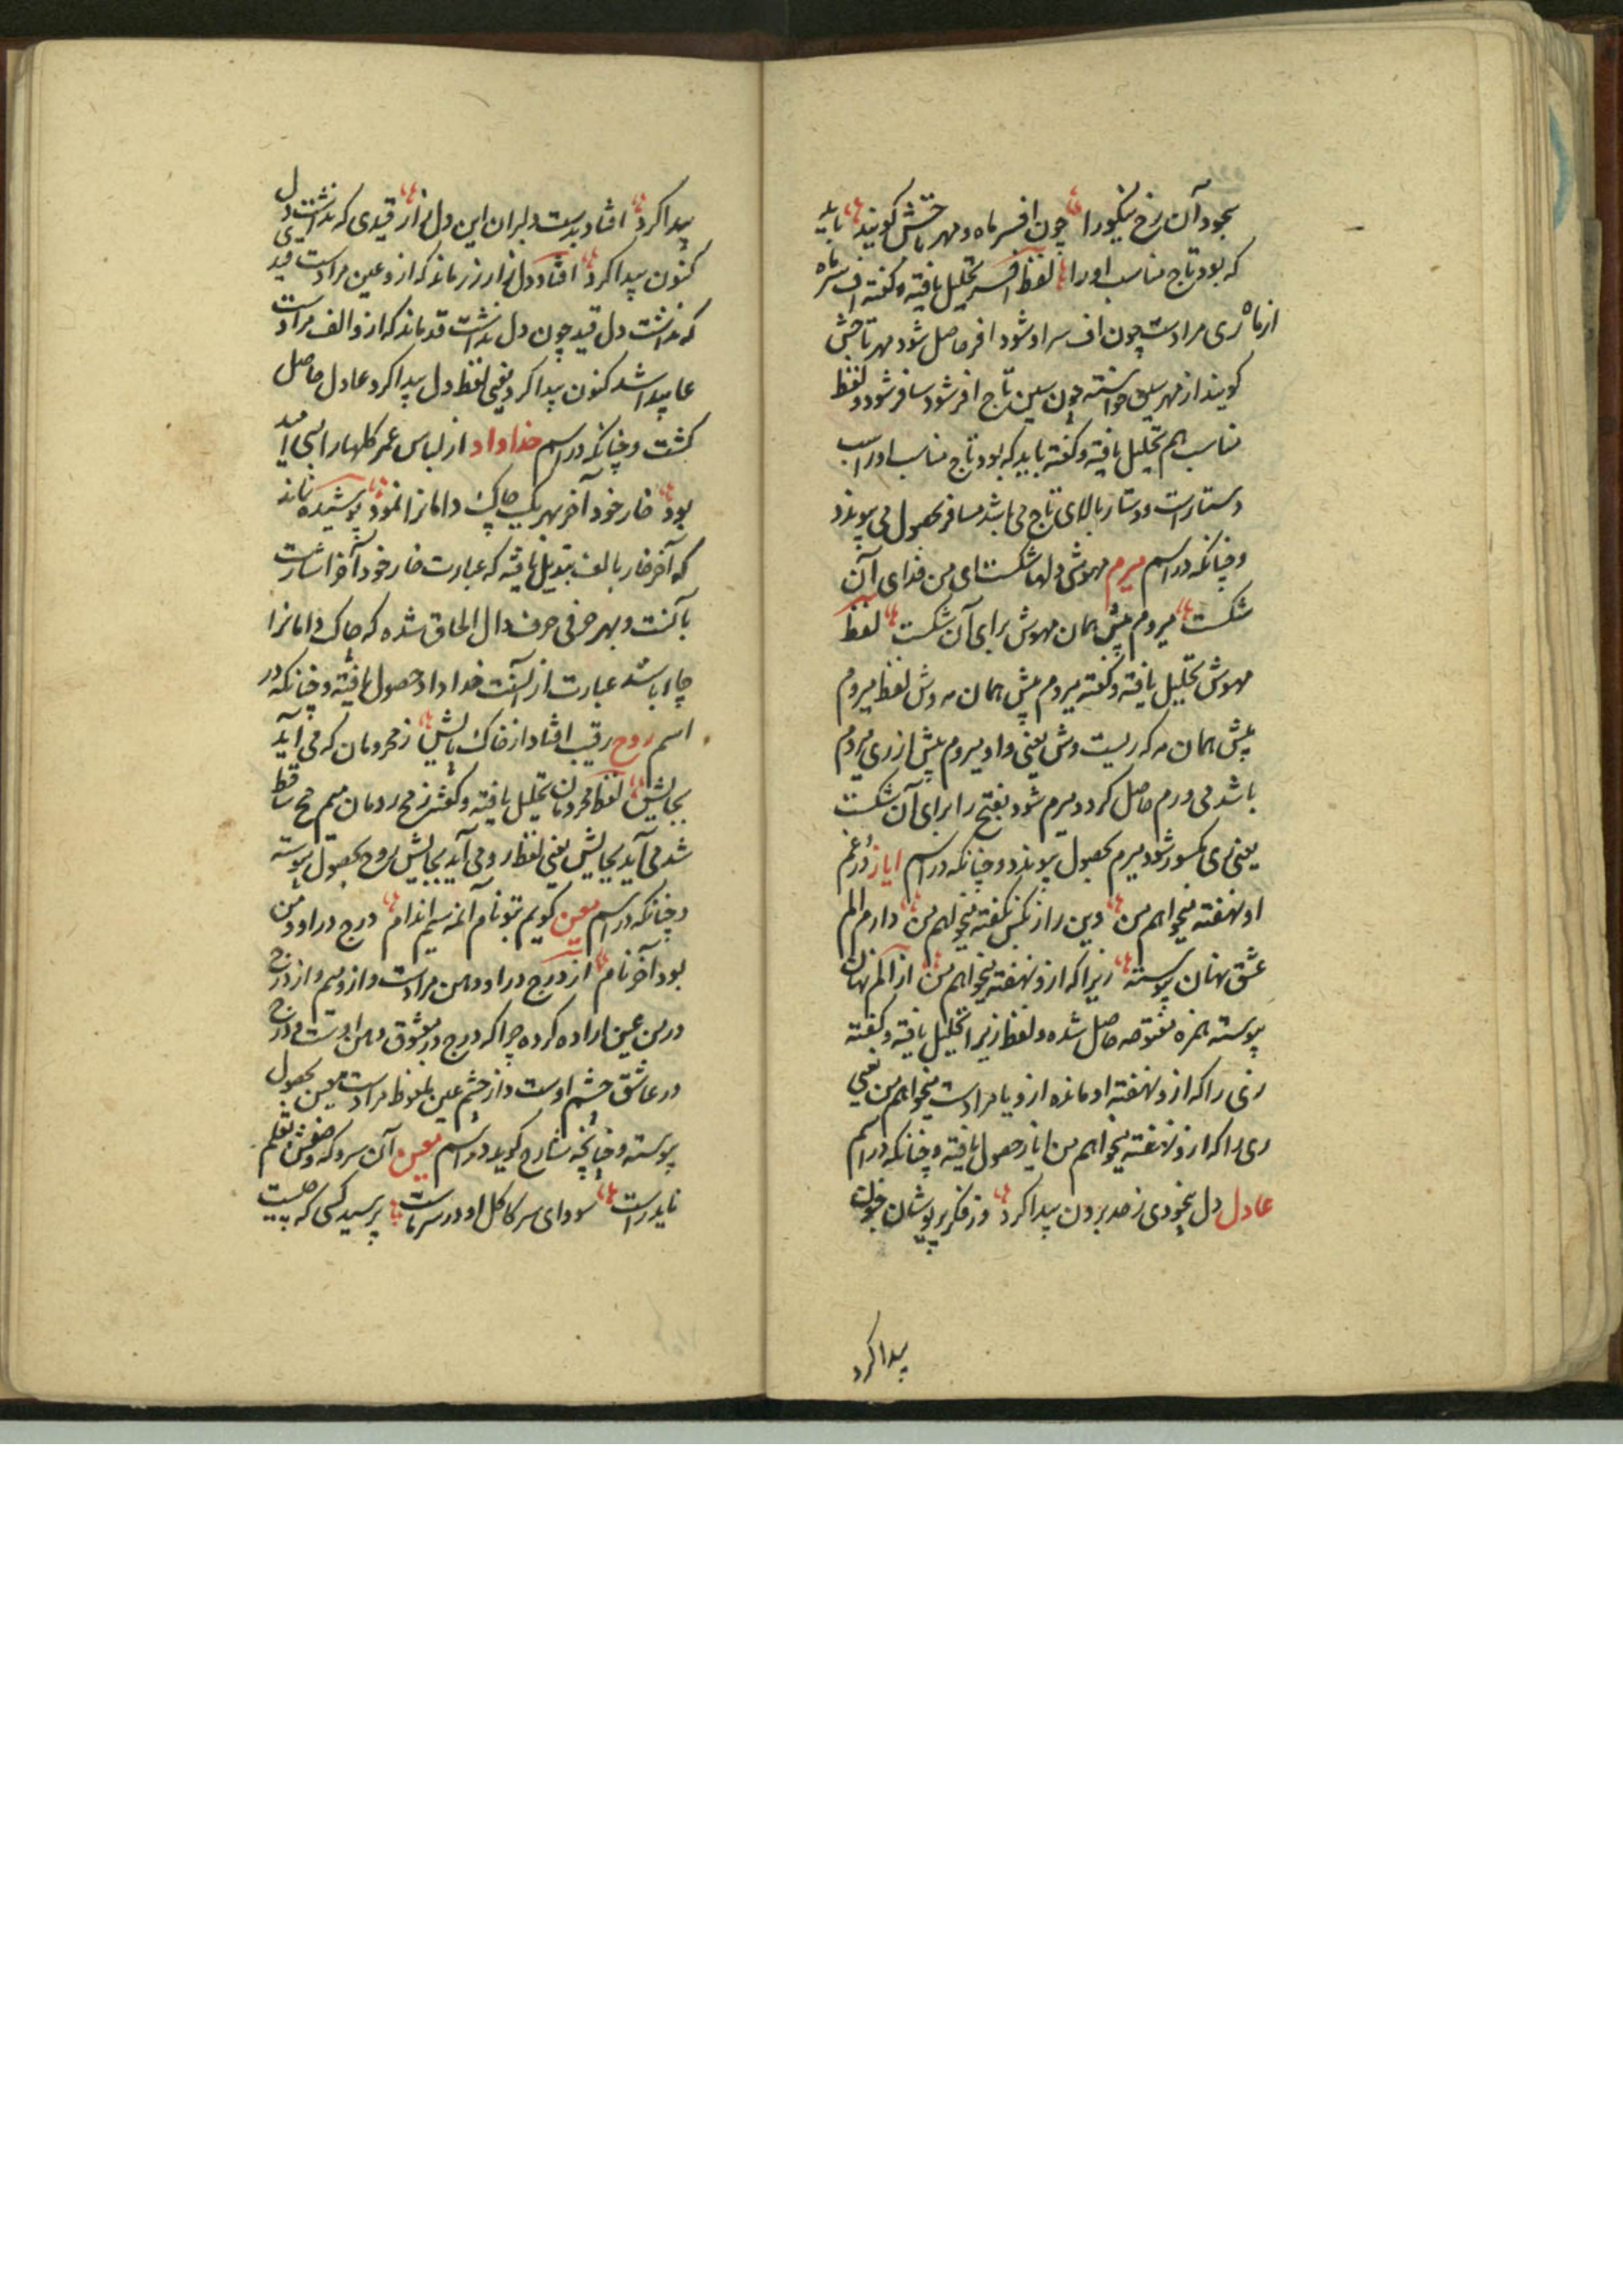 بجود آن رخ نیکو را چون افسر ماه و مهر تاجش گویند باید
که بود تاج مناسب او را لفظ افسر تحلیل یافته و گفته اف سر ماه
از ماه ری مرادست چون اف سر او شود افر حاصل شود مهر تاجش
گویند از مهر سین خواسته چون سین تاج افر شود سافر شود و لفظ
مناسب هم تحلیل یافته و گفته باید که بود تاج مناسب او را سب
دستارست و دستار بالای تاج می باشد مسافر بحصول می پیوندد
و چنانکه در اسم میرم مهوشی دلها شکست ای من فدای آن
شکست میروم پیش همان مهوش برای آن شکست لفظ
مهوش تحلیل یافته و گفته میروم پیش همان مه وش لفظ میروم
پیش همان مه که ریست وش یعنی واو میروم پیش از ری میروم
باشد می ورم حاصل گردد میرم شود بفتح را برای آن شکست
یعنی ری مکسور شود میرم بحصول پیوندد و چنانکه در اسم ایاز در غم
او نهفته میخواهم من وین راز بکس نگفته میخواهم من دارم الم
عشق نهان پیوسته زیرا که ازو نهفته میخواهم من از الم نهان
پیوسته همزه مفتوحه حاصل شده و لفظ زیرا تحلیل یافته و گفته
زی را که ازو نهفته او مانده ازو یا مرادست میخواهم من یعنی
ری را که ازو نهفته میخواهم من ایاز حصول یافته و چنانکه در اسم
عادل دل بیخودی ز حد برون پیدا کرد وز فکر پریوشان جنون
پیدا کرد
پیدا کرد افتاد بدست دلبران این دل زار قیدی که نداشت دل
کنون پیدا کرد افتاد دل زار زر ماند که ازو عین مرادست قیدی
که نداشت دل قید چون دل نداشت قد ماند که ازو الف مرادست
عا پیدا شد کنون پیدا کرد یعنی لفظ دل پیدا کرد عادل حاصل
گشت و چنانکه در اسم خداداد از لباس عمر گلها را بسی امید
بود خار خود آخر بهر یک چاک دامانرا نمود پوشیده نماند
که آخر خار بالف تبدیل یافته که عبارت خار خود آخر اشارت
بآنست و بهر حرفی حرف دال الحاق شده که چاک دامانرا
چا ا باشد عبارت از آنست خداداد حصول یافته و چنانکه در
اسم روح رقیب افتاد از خاک پایش ز محرومان که می آید
بجایش لفظ محرومان تحلیل یافته و گفته ز مح رومان میم مح ساقط
شد می آید بجایش یعنی لفظ رو می آید بجایش روح بحصول پیوسته
و چنانکه در اسم معین گویم بتو نام آن مه سیم اندام درج در او و من
بود آخر نام از درج در او دهن مرادست و ازو میم و از درج
در من عین اراده کرده چرا که درج در معشوق دهن اوست و درج
در عاشق چشم اوست و از چشم عین ملفوظ مرادست معین بحصول
پیوسته و چنانچه شارح گوید در اسم معین آن سرو که وصفش بقلم
ناید راست سودای سر کاکل او در سر ماست پرسید کسی که چیست